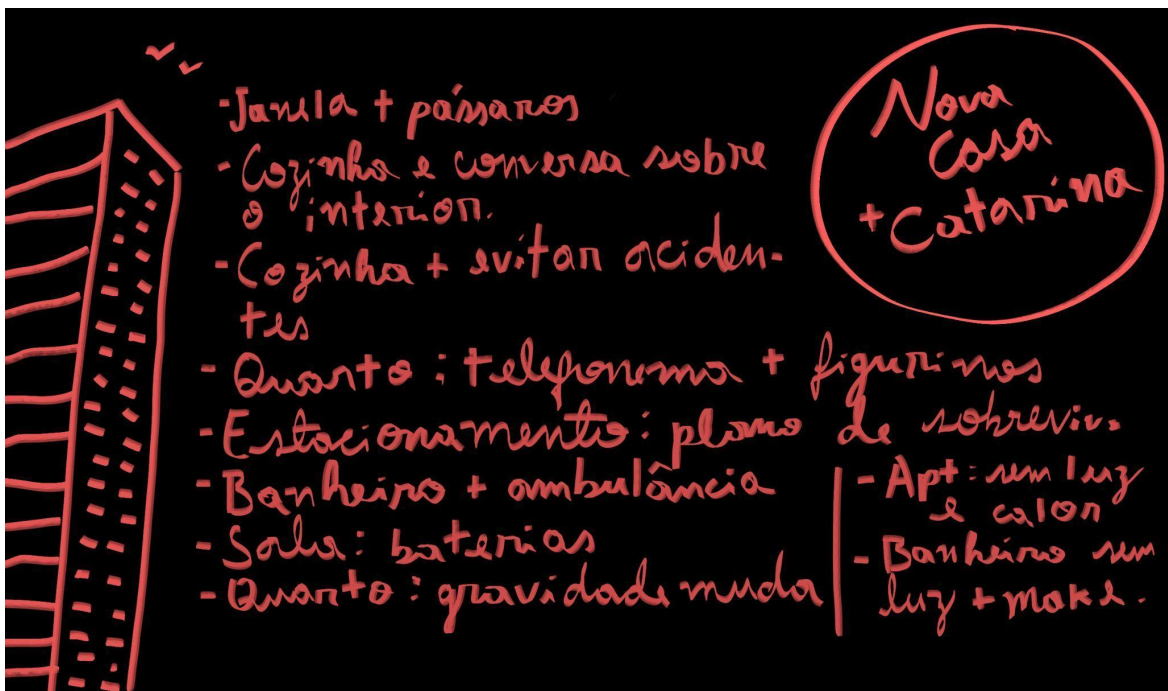 -Janela + pássaros
-Cozinha e conversa sobre
o interior.
-Cozinha + evitar aciden-
tes
-Quarto: telefonema + figurinos
-Estacionamento: plano de sobreviv.
-Banheiro + ambulância
-Sala: baterias
-Quarto: gravidade muda
-Apt: sem luz
e calor
-Banheiro sem
luz + make.
Nova
Casa
+Catarina